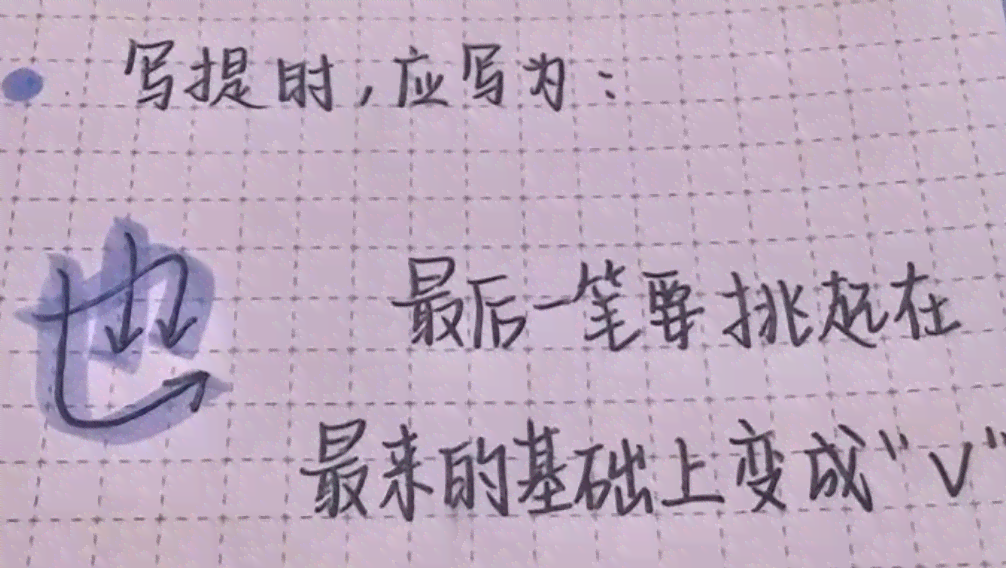 写提时，应写为：
也
最后一笔要挑起在
最来的基础上变成“V”